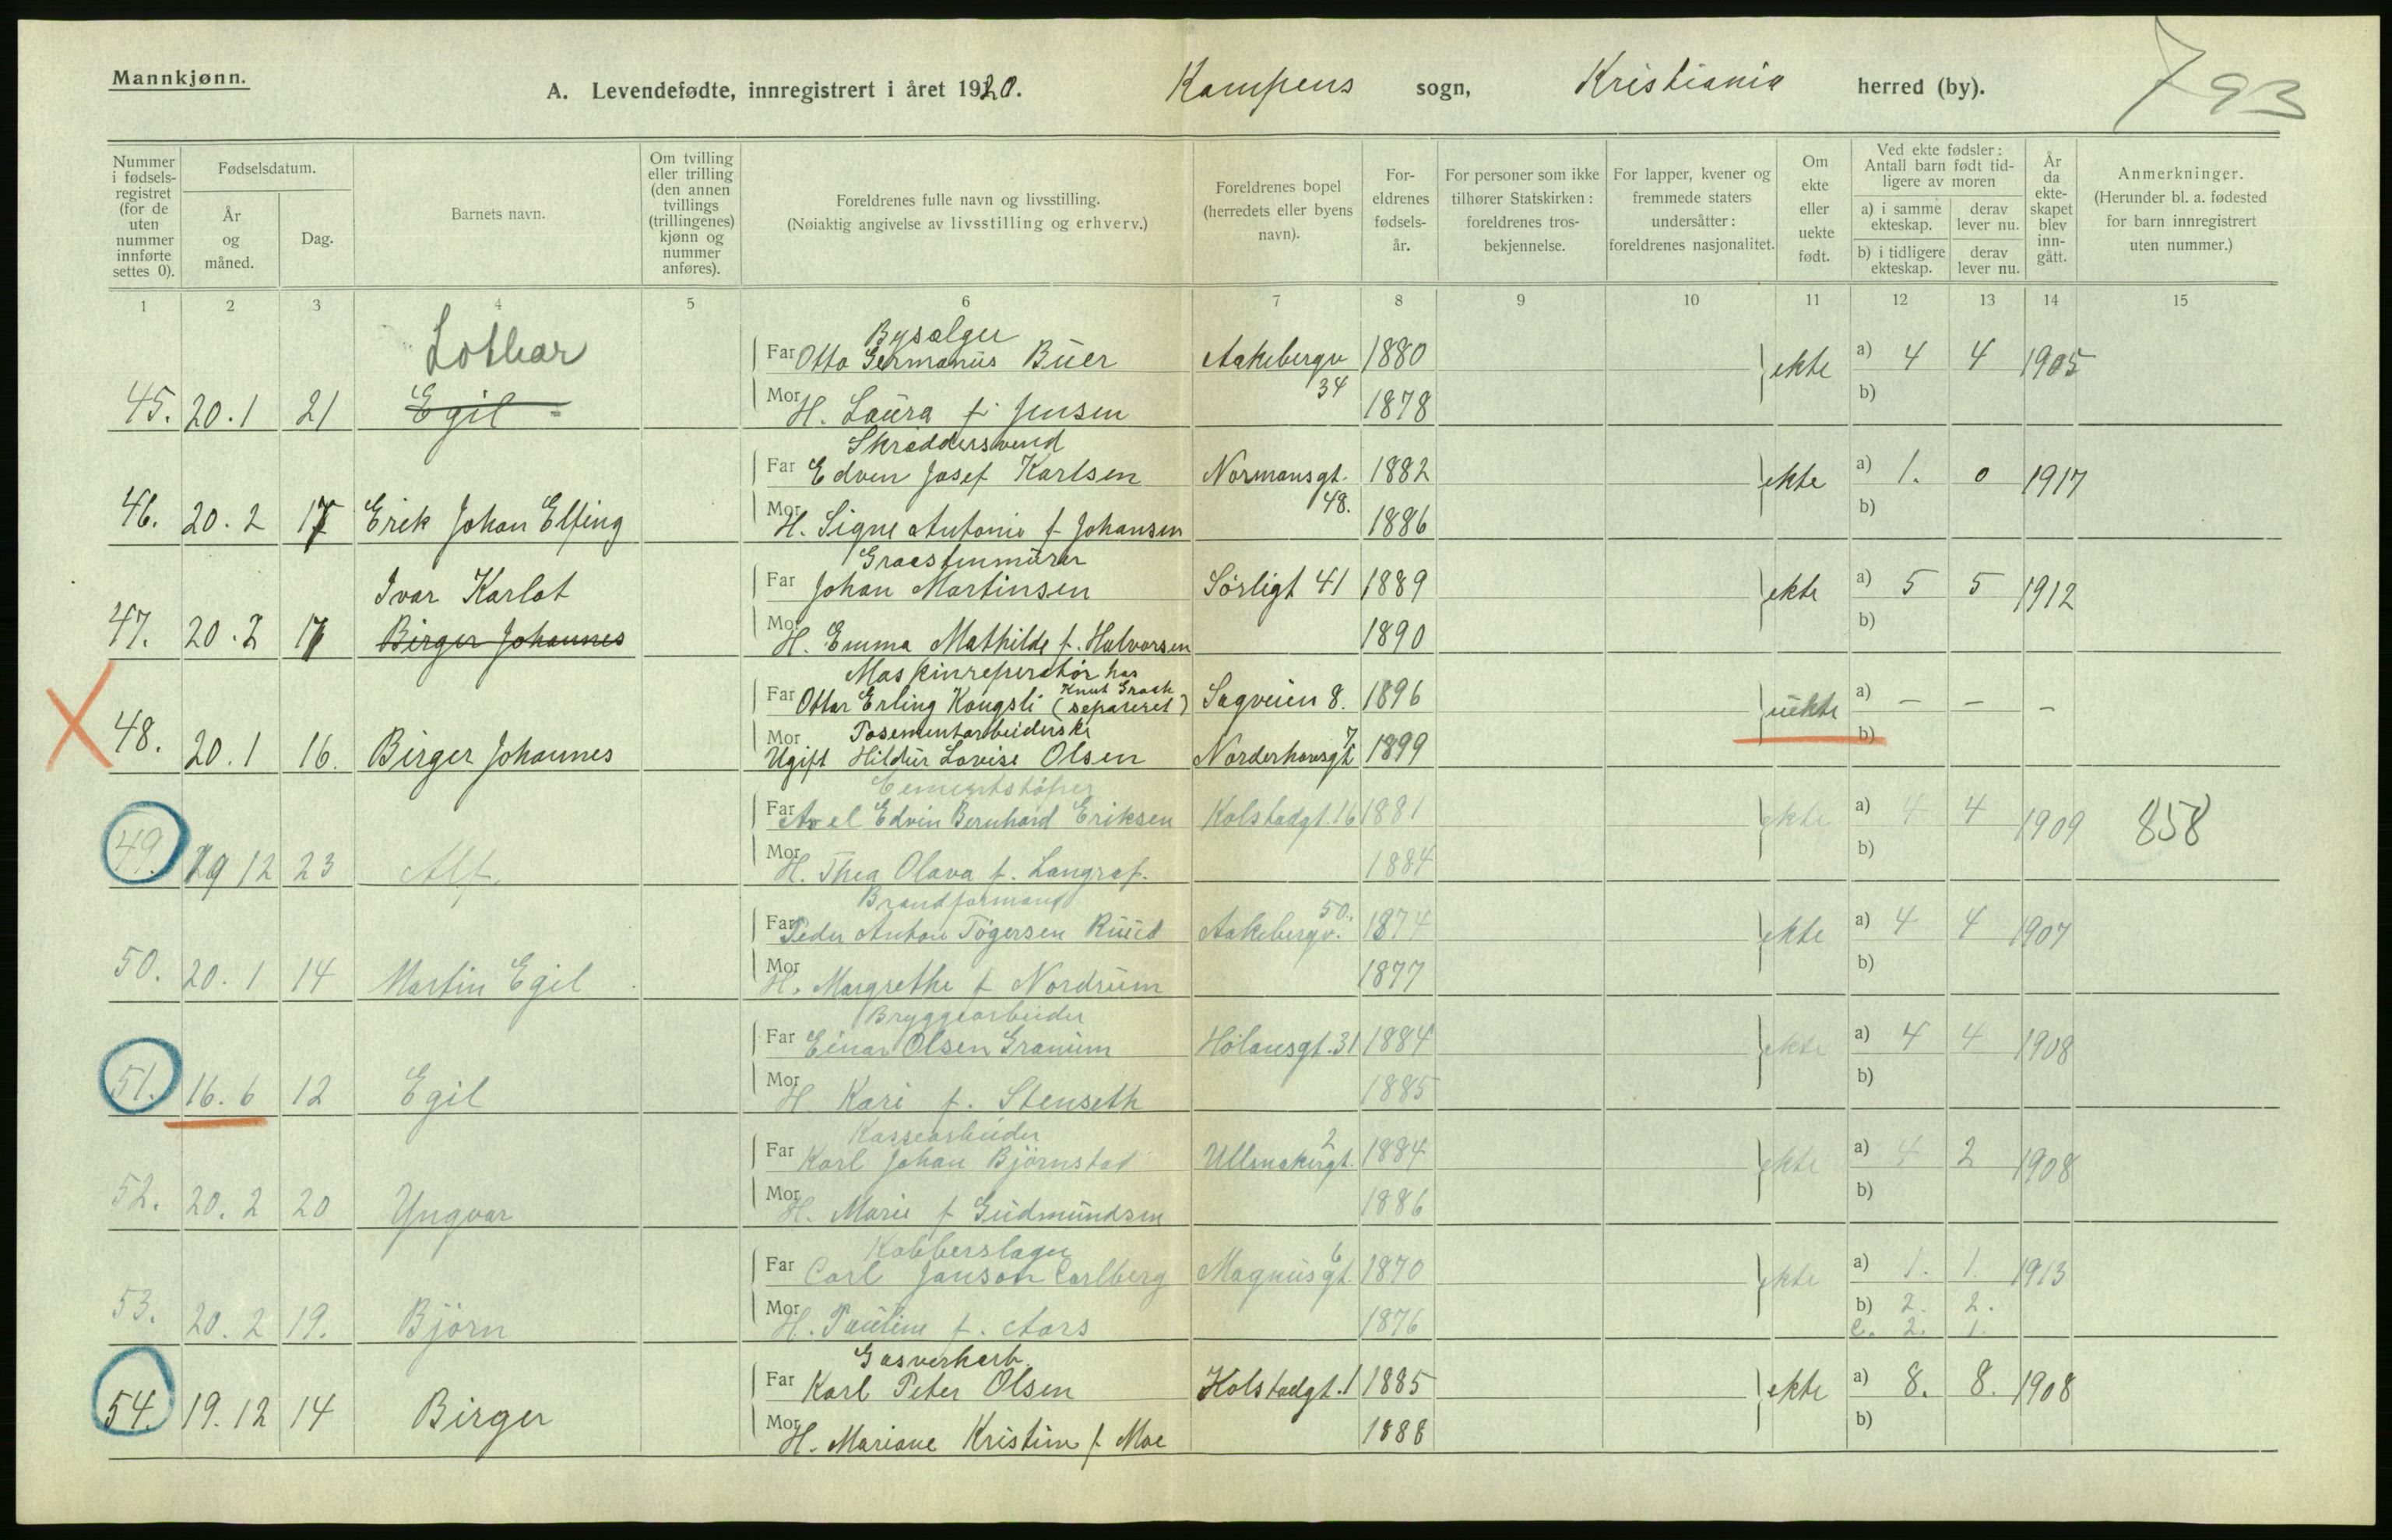 Mannkjønn.
A. Levendefødte, innregistrert i året 1920. Kampens sogn, Kristiania herred (by). 793
Nummer i fødsels-registret (for de uten nummer innførte settes 0).
Fødselsdatum.
År og måned.
Dag.
Barnets navn.
Om tvilling eller trilling (den annen tvillings (trillingenes) kjønn og nummer anføres).
Foreldrenes fulle navn og livsstilling.
(Nøiaktig angivelse av livsstilling og erhverv.)
Foreldrenes bopel (herredets eller byens navn).
For-eldrenes fødsels-år.
For personer som ikke tilhører Statskirken: foreldrenes tros-bekjennelse.
For lapper, kvener og fremmede staters undersåtter: foreldrenes nasjonalitet.
Om ekte eller uekte født.
Ved ekte fødsler: Antall barn født tid-ligere av moren
a) i samme ekteskap.
derav lever nu.
b) i tidligere ekteskap.
derav lever nu.
År da ekte-skapet blev inn-gått.
Anmerkninger.
(Herunder bl. a. fødested for barn innregistrert uten nummer.)
1 2 3 4 5 6 7 8 9 10 11 12 13 14 15
Lothar Bysælger
Far Otto Germanius Buer Aakebergv 34 1880 ekte a) 4 4 1905
45. 20.1 21 Egil Mor H. Laura f. Jensen 1878 b)
Skræddersvend
Far Edvin Josef Karlsen Normansgt. 48. 1882 ekte a) 1. 0 1917
46. 20.2 17 Erik Johan Elfing Mor H. Signe Antonie f Johansen 1886 b)
Graastenmurer
Ivar Karlot Far Johan Martinsen Sörligt 41 1889 ekte a) 5 5 1912
47. 20.2 17 Birger Johannes Mor H. Emma Mathilde f. Halvorsen 1890 b)
Maskinreperatör hos Knut Graah
Far Ottar Erling Kongsli (separeret) Sagveien 8. 1896 uekte a) — — —
Posementarbeiderske
48. 20.1 16. Birger Johannes Mor Ugift Hildur Lovise Olsen Norderhovsgt 7 1899 b)
Cementstöper
Far Axel Edvin Bernhard Eriksen Kolstadgt. 16 1881 ekte a) 4 4 1909 858
49. 19 12 23 Alf. Mor H. Thea Olava f. Langraf. 1884 b)
Brandformand
Far Peder Anton Tögersen Ruud Aakebergv. 50. 1874 ekte a) 4 4 1907
50. 20.1 14 Martin Egil Mor H. Margrethe f Nordrum 1877 b)
Bryggearbeider
Far Einar Olsen Granum Hölansgt. 31 1884 ekte a) 4 4 1908
51. 16.6 12 Egil Mor H. Kari f. Stenseth 1885 b)
Kassearbeider
Far Karl Johan Björnstad Ullensakergt. 2 1884 ekte a) 4 2 1908
52. 20.2 20 Yngvar Mor H. Marie f Gudmundsen 1886 b)
Kobberslager
Far Carl Janson Carlberg Magnusgt. 6 1870 ekte a) 1. 1. 1913
53. 20.2 19. Björn Mor H. Pauline f. Aars 1876 b) 2. 2.
c. 2. 1.
Gasverkarb.
Far Karl Peter Olsen Kolstadgt. 1 1885 ekte a) 8. 8. 1908
54. 19.12 14 Birger Mor H. Mariane Kristine f Moe 1888 b)